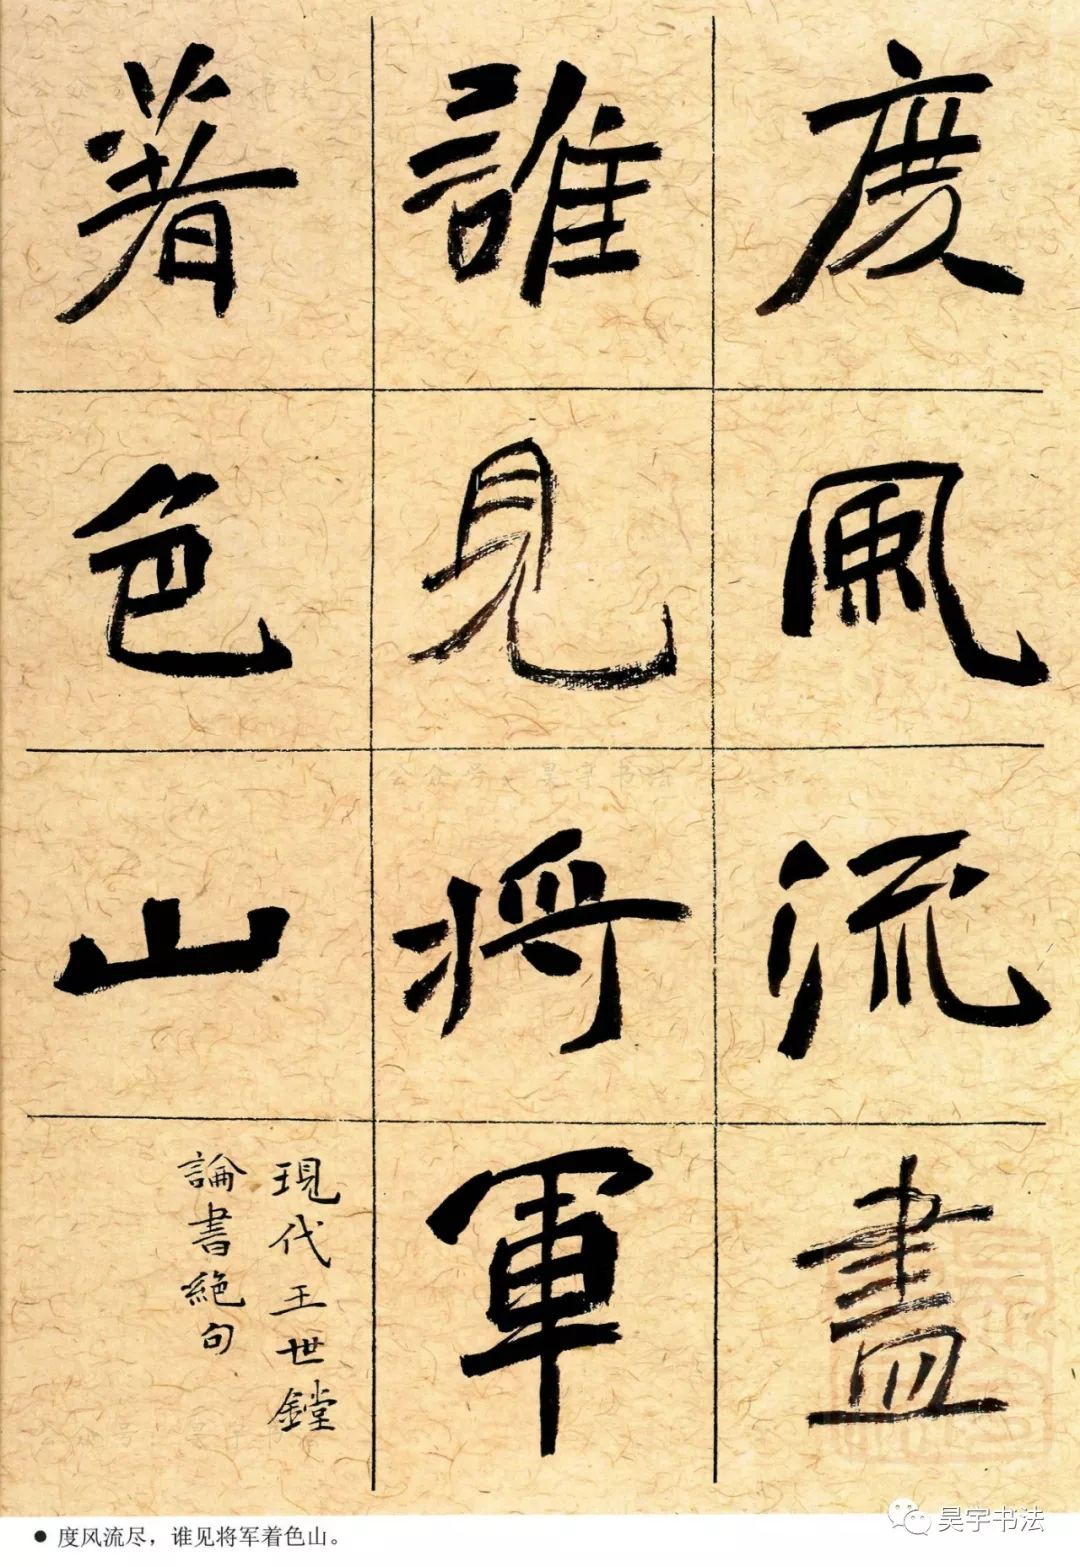 度風流盡
誰見將軍
著色山
現代王世鏜
論書絕句
公众号：昊宇书法
● 度风流尽，谁见将军着色山。
昊宇书法